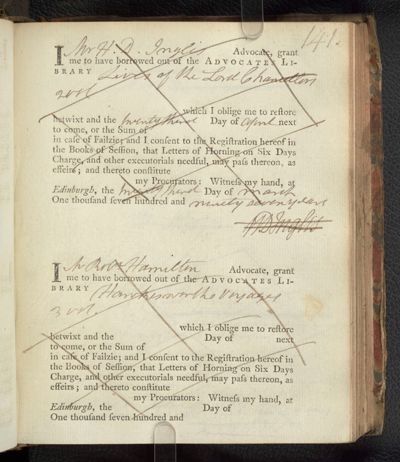 141.
I Mr H. D. Inglis Advocate, grant
me to have borrowed out of the ADVOCATES LI-
BRARY Lives of the Lord Chancellors
2 vols
which I oblige me to restore
betwixt and the twenty third Day of April next
to come, or the Sum of
in case of Failzie; and I consent to the Registration hereof in
the Books of Session, that Letters of Horning on Six Days
Charge, and other executorials needful, may pass thereon, as
effeirs; and thereto constitute
my Procurators: Witness my hand, at
Edinburgh, the twenty third Day of March
One thousand seven hundred and ninety seven years
HD Inglis
I Mr Robt Hamilton Advocate, grant
me to have borrowed out of the ADVOCATES LI-
BRARY Hawkesworths Voyages
3 vols
which I oblige me to restore
betwixt and the Day of next
to come, or the Sum of
in case of Failzie; and I consent to the Registration hereof in
the Books of Session, that Letters of Horning on Six Days
Charge, and other executorials needful, may pass thereon, as
effeirs; and thereto constitute
my Procurators: Witness my hand, at
Edinburgh, the Day of
One thousand seven hundred and